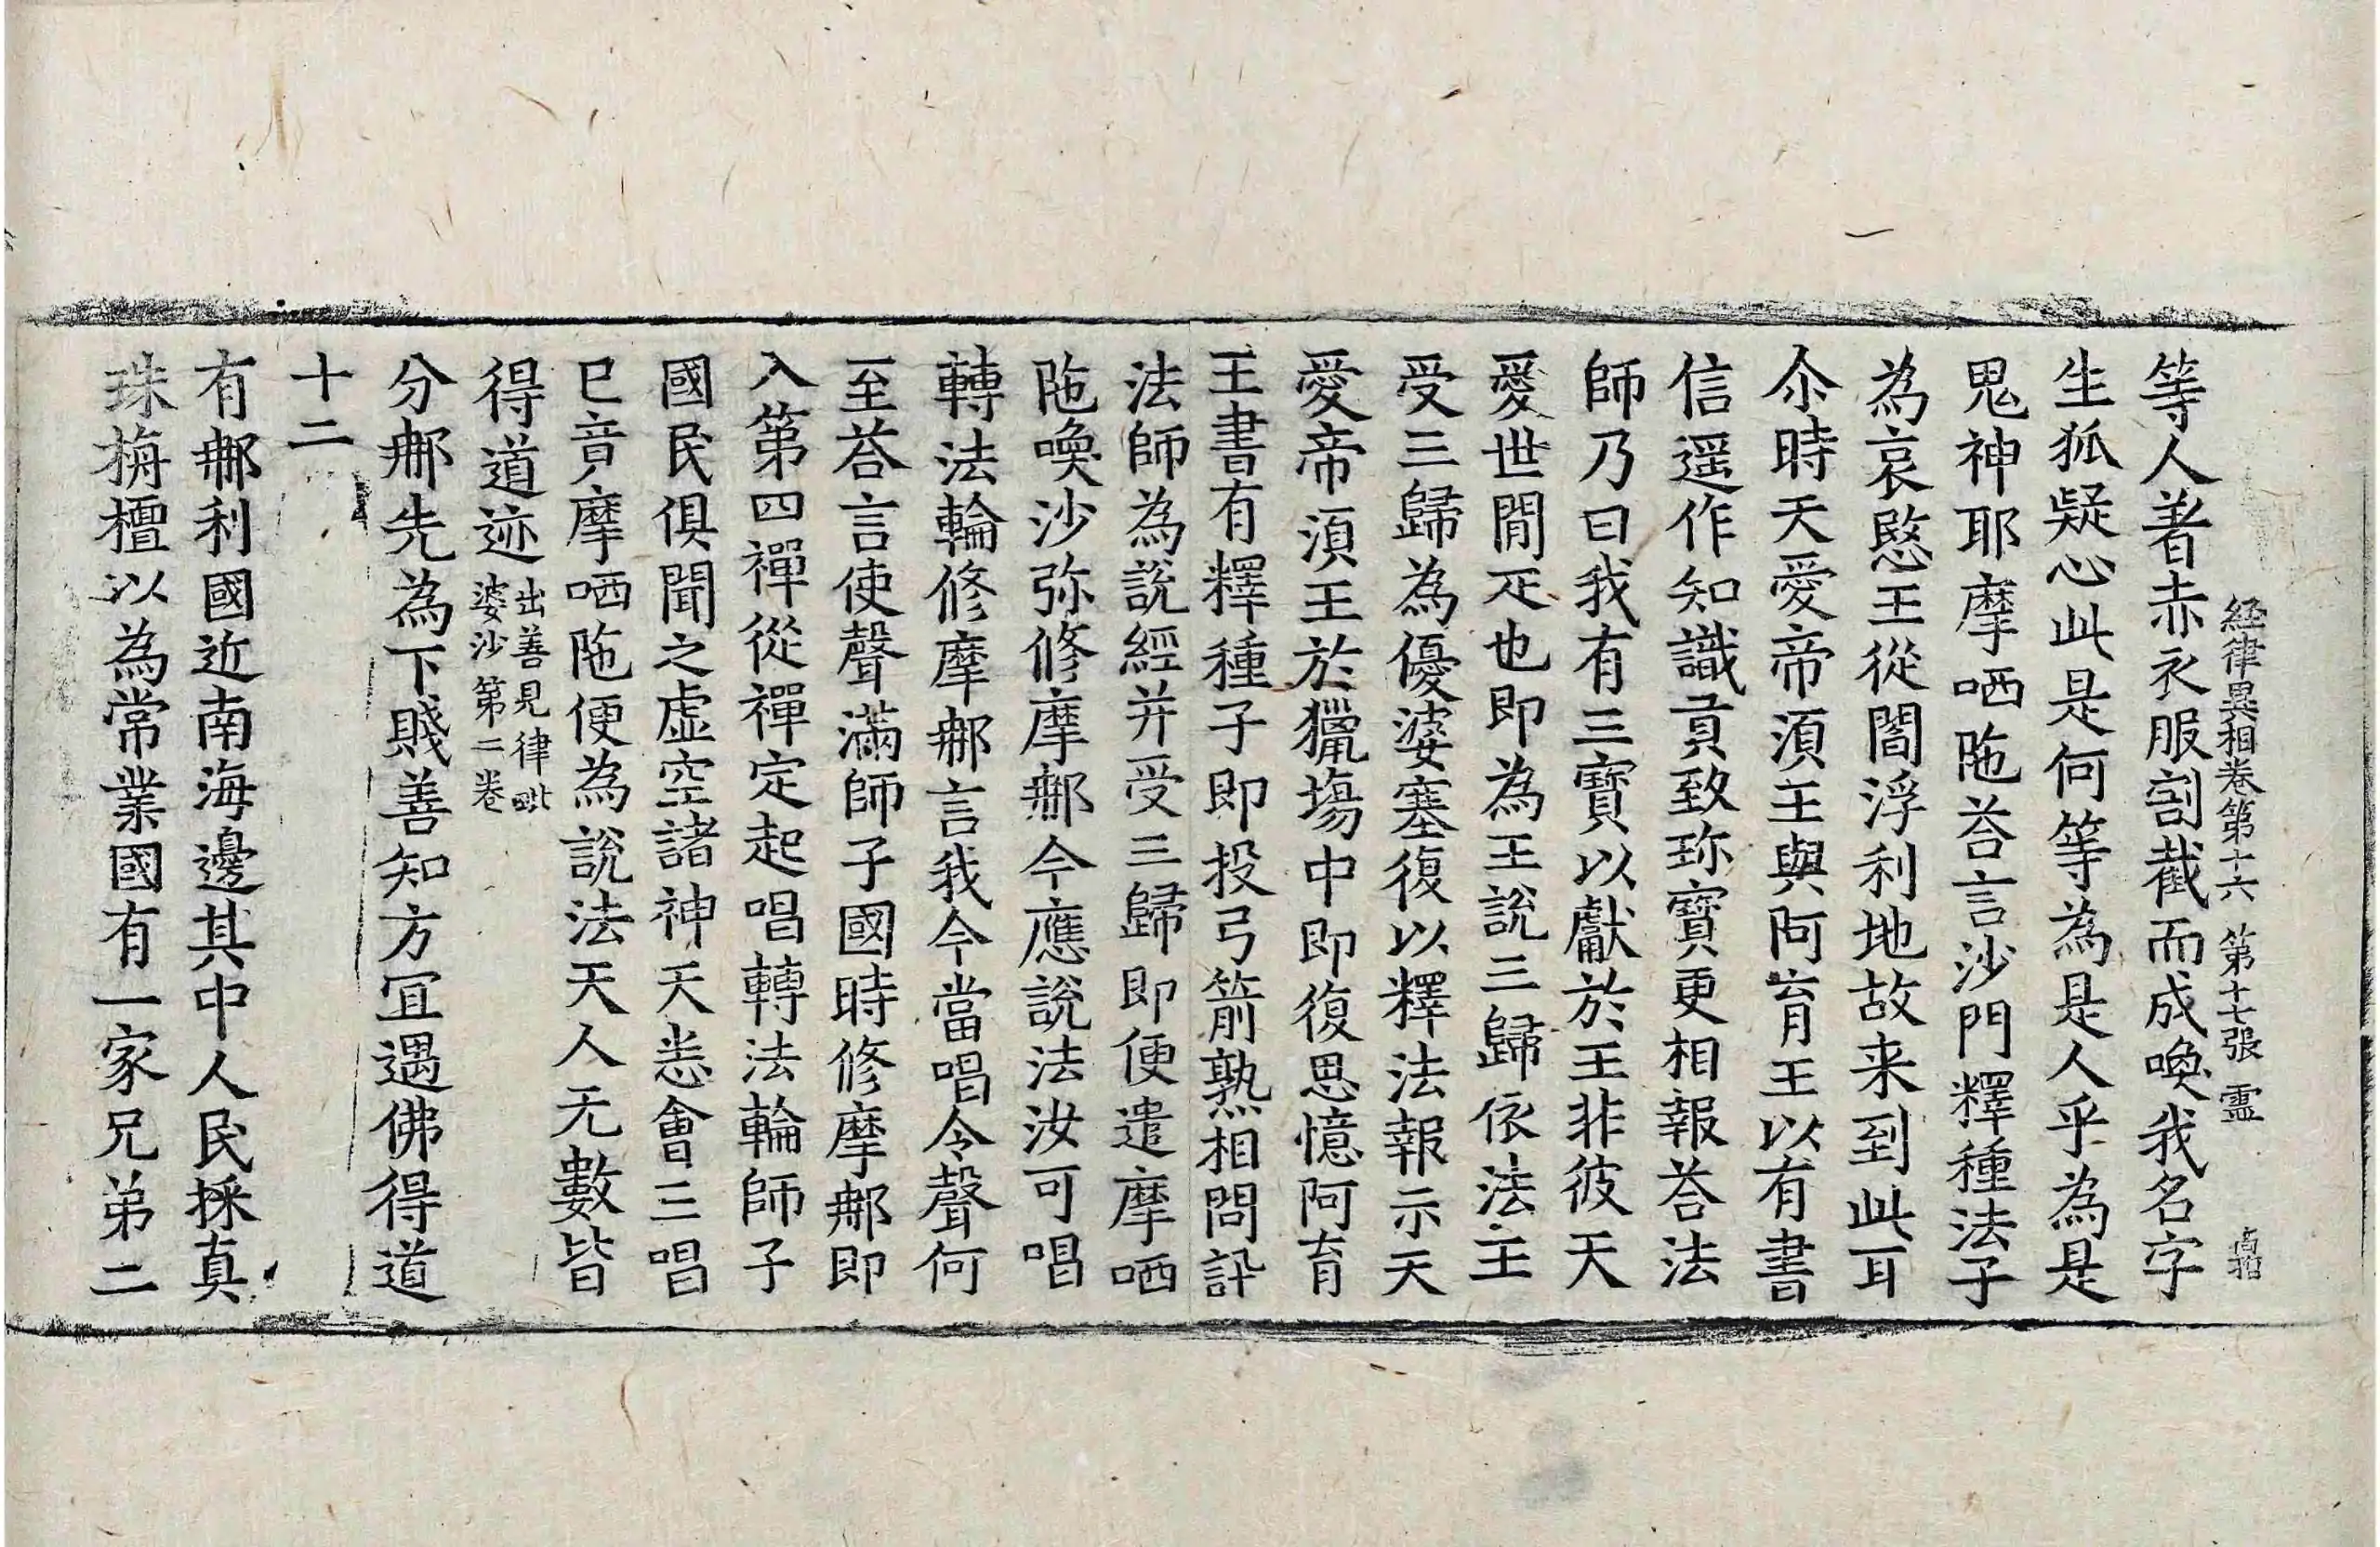 経律異相卷第十六 第十七張 霊
等人著赤衣服割截而成喚我名字
生狐疑心此是何等為是人乎為是
鬼神耶摩哂陁荅言沙門釋種法子
為哀愍王從閻浮利地故来到此耳
尒時天愛帝湏王與阿育王以有書
信遥作知識貢致珎寶更相報荅法
師乃曰我有三寶以獻於王非彼天
愛世間疋也即為王說三歸依法主
受三歸為優婆塞復以釋法報示天
愛帝湏王於獵塲中即復思憶阿育
王書有釋種子即投弓箭熟相問訊
法師為說經并受三歸即便遣摩哂
陁喚沙弥修摩那今應說法汝可唱
轉法輪修摩那言我今當唱令聲何
至荅言使聲滿師子國時修摩那即
入第四禪從禪定起唱轉法輪師子
國民俱聞之虛空諸神天悉會三唱
已音摩哂陁便為說法天人无數皆
得道迹出善見律毗婆沙第二卷
分那先為下賤善知方冝遇佛得道
十二
有那利國近南海邊其中人民採真
珠栴檀以為常業國有一家兄弟二